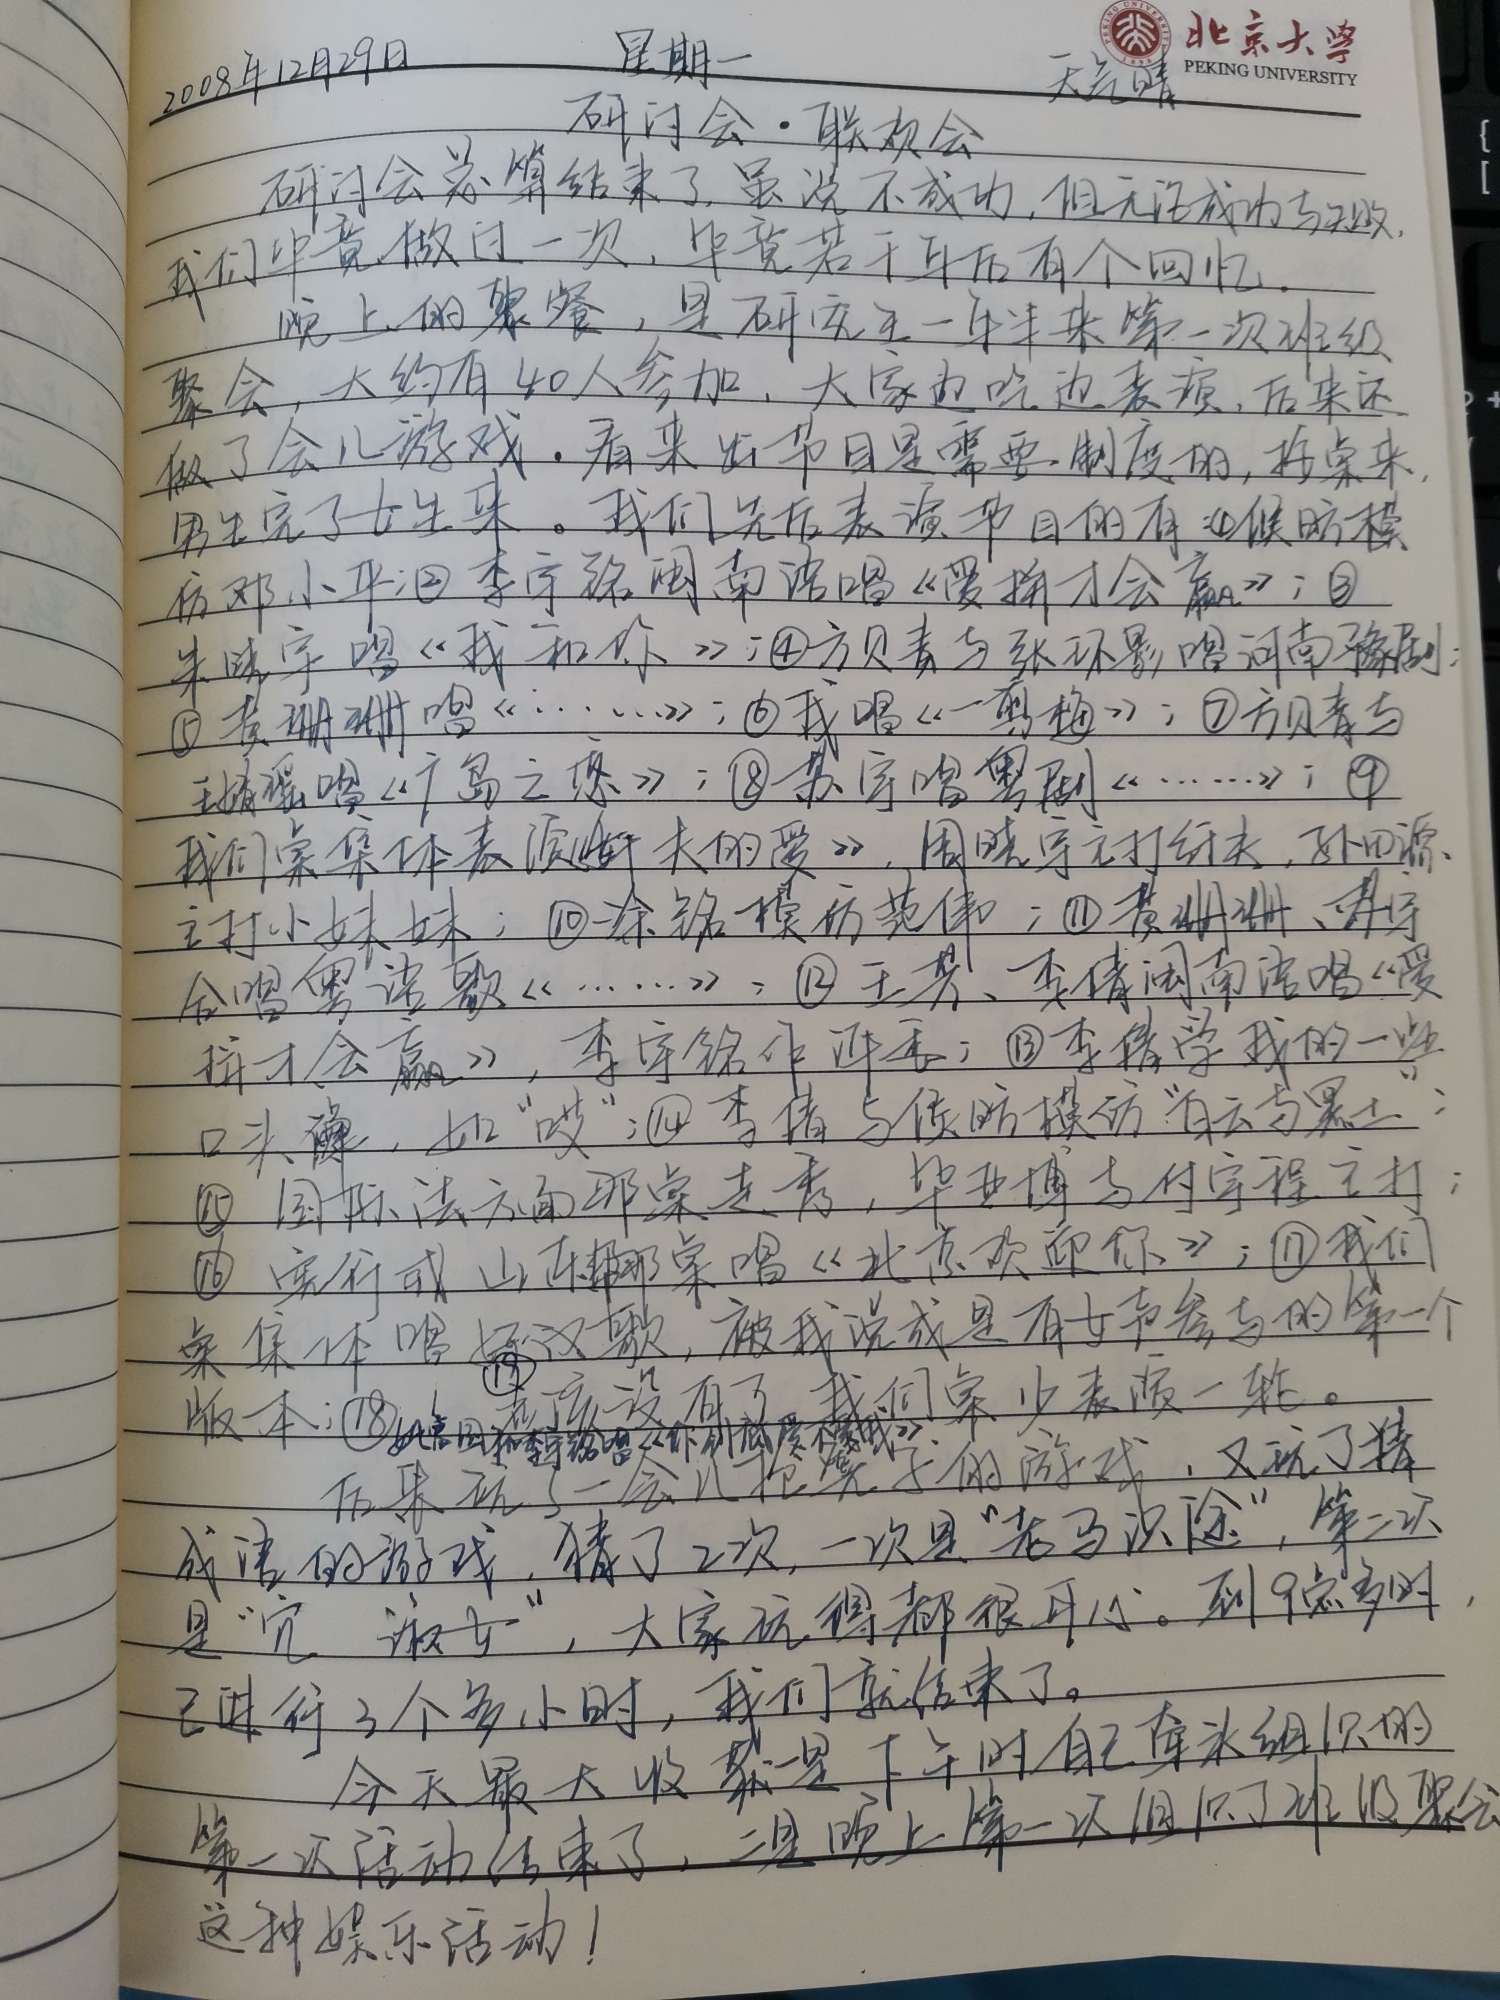 北京大学
PEKING UNIVERSITY
2008年12月29日 星期一 天气晴
研讨会·联欢会
研讨会总算结束了,虽说不成功,但无论成功与失败,
我们毕竟做过一次,毕竟若干年后有个回忆.
晚上的聚餐,是研究生一年半来第一次班级
聚会,大约有40人参加,大家边吃边表演,后来还
做了会儿游戏.看来出节目是需要制度的,按桌来,
男生完了女生来。我们先后表演节目的有:①候昉模
仿邓小平;②李宇铭闽南语唱《爱拼才会赢》;③
朱晓宇唱《我和你》;④方贝青与张环影唱河南豫剧;
⑤黄珊珊唱《……》;⑥我唱《一剪梅》;⑦方贝青与
王婧瑶唱《广岛之恋》;⑧苏宇唱粤剧《……》;⑨
我们桌集体表演《纤夫的爱》,周晓宇主打纤夫,孙田源
主打小妹妹;⑩涂铭模仿范伟;⑪黄珊珊、苏宇
合唱粤语歌《……》;⑫王男、李倩闽南语唱《爱
拼才会赢》,李宇铭作评委;⑬李倩学我的一些
口头禅,如“哎”;⑭李倩与侯昉模仿“白云与黑土”;
⑮国际法方面那桌走秀,毕亚博与付宇程主打;
⑯实行或山东帮那桌唱《北京欢迎你》;⑰我们
桌集体唱好汉歌,被我说成是有女声参与的第一个
版本;⑱和李宇铭唱《你到底爱不爱我》⑲应该没有了,我们桌少表演一轮。
后来玩了一会儿抢凳子的游戏,又玩了猜
成语的游戏,猜了2次,一次是“老马识途”,第二次
是“窈 淑女”,大家玩得都很开心。到9点多时,
已进行3个多小时,我们就结束了。
今天最大收获一是下午时自己牵头组织的
第一次活动结束了,二是晚上第一次组织了班级聚会
这种娱乐活动!